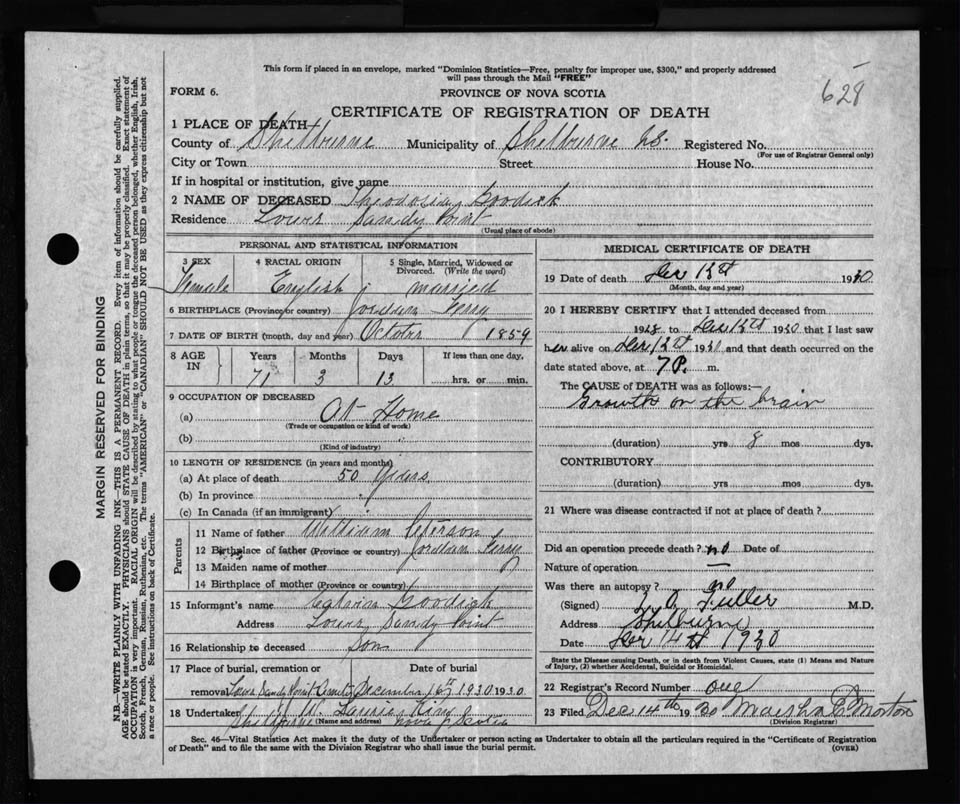 This form if placed in an envelope, marked "Dominion Statistics—Free, penalty for improper use, $300," and properly addressed
will pass through the Mail "FREE"
628
FORM 6.
PROVINCE OF NOVA SCOTIA
CERTIFICATE OF REGISTRATION OF DEATH
1 PLACE OF DEATH
County of Shelburne Municipality of Shelburne N.S. Registered No.
(For use of Registrar General only)
City or Town Street House No.
If in hospital or institution, give name
2 NAME OF DECEASED Goodick
Residence Lower Sandy Point
(Usual place of abode)
PERSONAL AND STATISTICAL INFORMATION
3 SEX 4 RACIAL ORIGIN 5 Single, Married, Widowed or Divorced. (Write the word)
Female English married
6 BIRTHPLACE (Province or country) Jordan Ferry
7 DATE OF BIRTH (month, day and year) 1859
8 AGE IN Years Months Days If less than one day,
71 3 13 hrs. or min.
9 OCCUPATION OF DECEASED
(a) At Home
(Trade or occupation or kind of work)
(b)
(Kind of industry)
10 LENGTH OF RESIDENCE (in years and months)
(a) At place of death 50 years
(b) In province
(c) In Canada (if an immigrant)
Parents
11 Name of father
12 Birthplace of father (Province or country) Jordan Ferry
13 Maiden name of mother
14 Birthplace of mother (Province or country)
15 Informant's name
Address Lower Sandy Point
16 Relationship to deceased Son
17 Place of burial, cremation or Date of burial
removal Lower Sandy Point December 1930 1930
18 Undertaker
(Name and address) Nova Scotia
MEDICAL CERTIFICATE OF DEATH
19 Date of death 1930
(Month, day and year)
20 I HEREBY CERTIFY that I attended deceased from
1928 to 1930 that I last saw
her alive on 1930 and that death occurred on the
date stated above, at 7 P. m.
The CAUSE of DEATH was as follows:
Growth on the brain
(duration) yrs 8 mos dys.
CONTRIBUTORY
(duration) yrs mos dys.
21 Where was disease contracted if not at place of death?
Did an operation precede death? no Date of
Nature of operation —
Was there an autopsy? no
(Signed) Fuller M.D.
Address Shelburne
Date Dec 14th 1930
State the Disease causing Death, or in death from Violent Causes, state (1) Means and Nature
of Injury, (2) whether Accidental, Suicidal or Homicidal.
22 Registrar's Record Number one
23 Filed Dec 14th 1930 Morton
(Division Registrar)
Sec. 46—Vital Statistics Act makes it the duty of the Undertaker or person acting as Undertaker to obtain all the particulars required in the "Certificate of Registration
of Death" and to file the same with the Division Registrar who shall issue the burial permit.
(OVER)
MARGIN RESERVED FOR BINDING
N.B.—WRITE PLAINLY WITH UNFADING INK—THIS IS A PERMANENT RECORD. Every item of information should be carefully supplied.
AGE should be stated EXACTLY. PHYSICIANS should STATE CAUSE OF DEATH in plain terms, so that it may be properly classified. Exact statement of
OCCUPATION is very important. RACIAL ORIGIN will be described by stating to what people or tongue the deceased person belonged, whether English, Irish,
Scotch, French, German, Russian, Ruthenian, etc. The terms "AMERICAN" or "CANADIAN" SHOULD NOT BE USED as they express citizenship but not
a race or people. See instructions on back of Certificate.